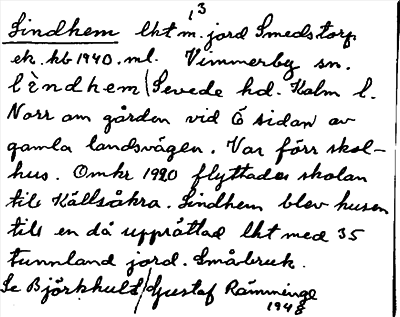 13
Lindhem lht m. jord Smedstorp
ek. kb 1940. ml. Vimmerby sn.
lèndhem/Sevede hd. Kalm l.
Norr om gården vid Ö sidan av
gamla landsvägen. Var förr skol-
hus. Omkr 1920 flyttades skolan
till Källsåkra. Lindhem blev husen
till en då upprättad lht med 35
tunnland jord. Småbruk.
Se Björkhult/Gustaf Rämminge
1948